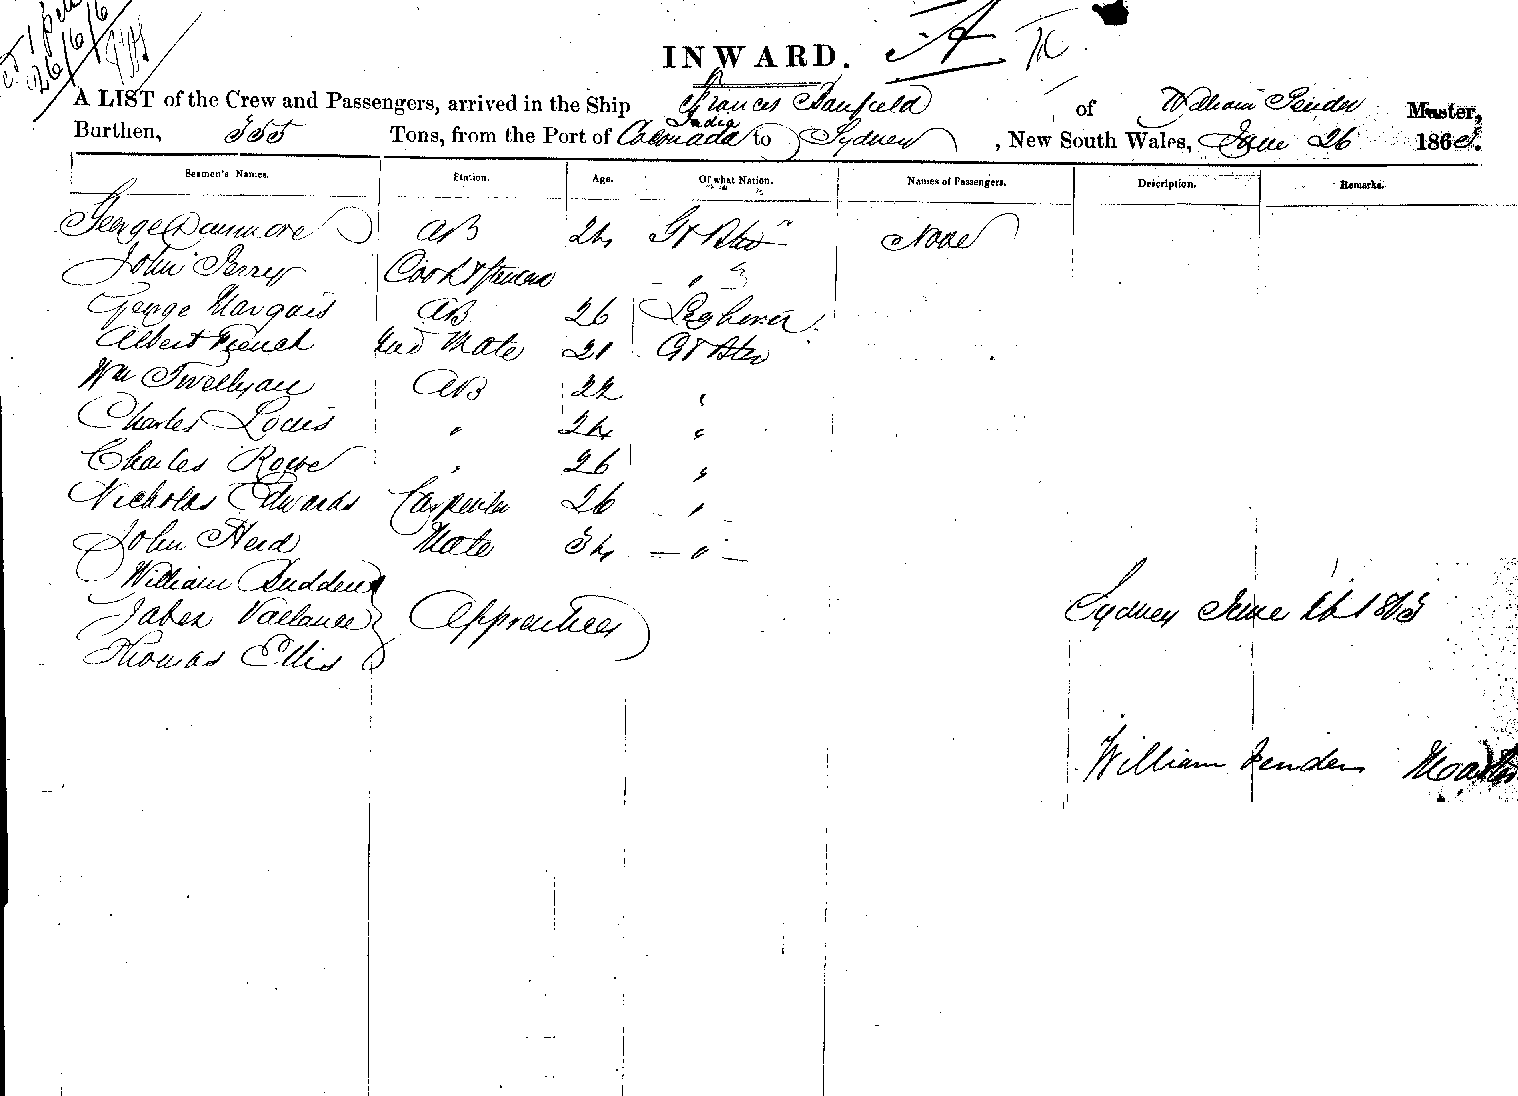 26/6/6
INWARD. A
A LIST of the Crew and Passengers, arrived in the Ship Frances Banfield of William Pender Master,
India
Burthen, 355 Tons, from the Port of Coconada to Sydney, New South Wales, June 26 1863.
Seamen's Names. Station. Age. Of what Nation. Names of Passengers. Description. Remarks.
George AB 24 Gt Btn None
John Perry Cook & Steward "
George Marquis AB 26 Leghorn
Albert French 2nd Mate 21 Gt Btn
Wm AB 22 "
Charles Louis " 24 "
Charles Rowe " 26 "
Nicholas Edwards Carpenter 26 "
John Herd Mate 34 — " —
William
Jabez Vallance Apprentices Sydney June 26 1863
Thomas Ellis
William Pender Master